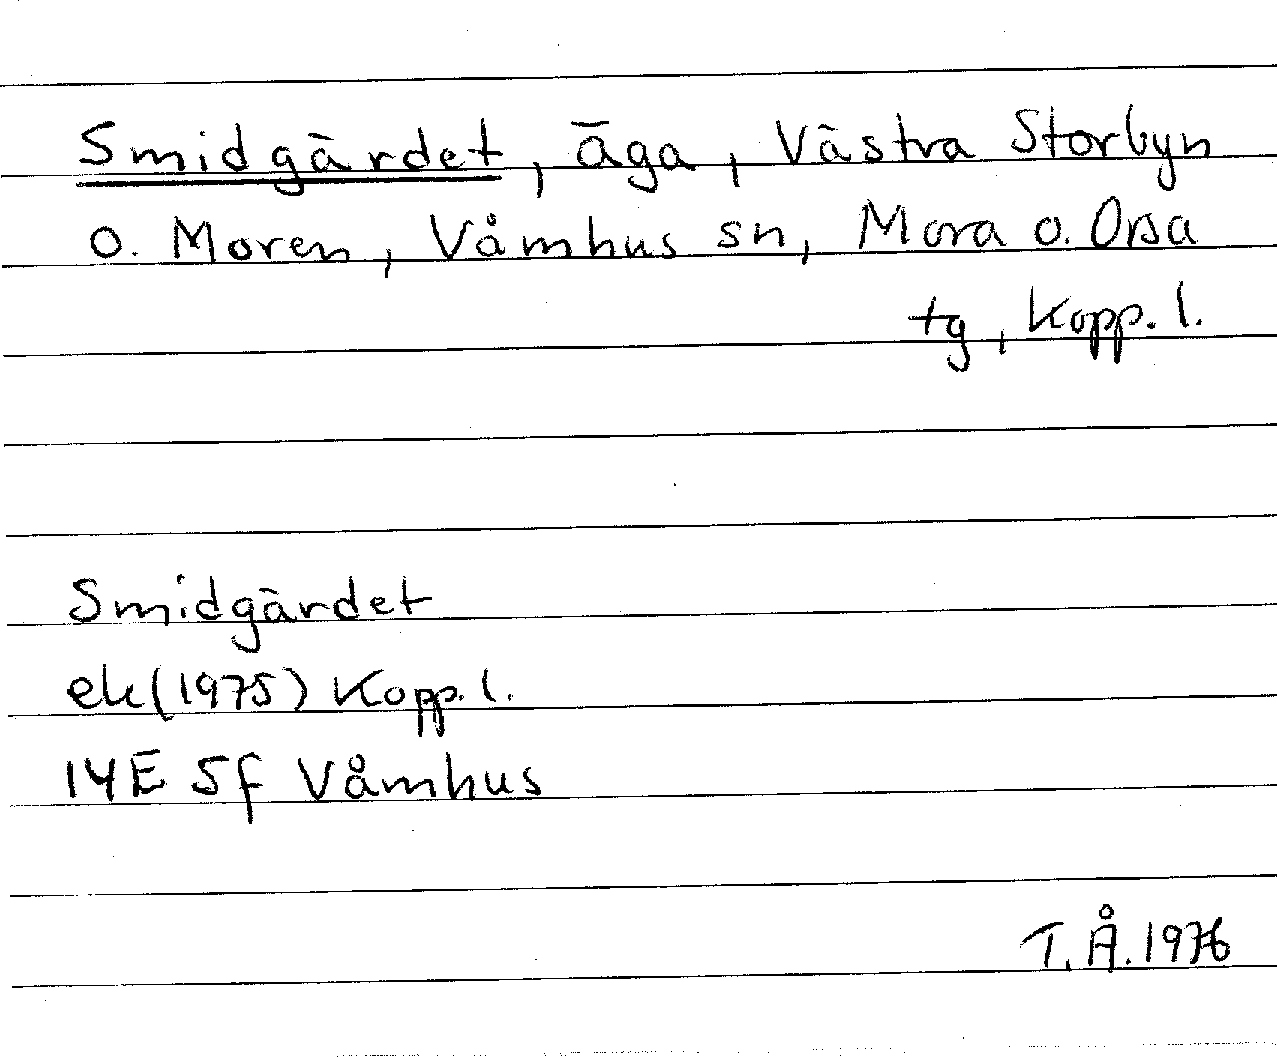 Smidgärdet, äga, Västra Storbyn
o. Moren, Våmhus sn, Mora o. Orsa
tg, Kopp. l.
Smidgärdet
ek (1975) Kopp. l.
14E 5f Våmhus
T. Å. 1976